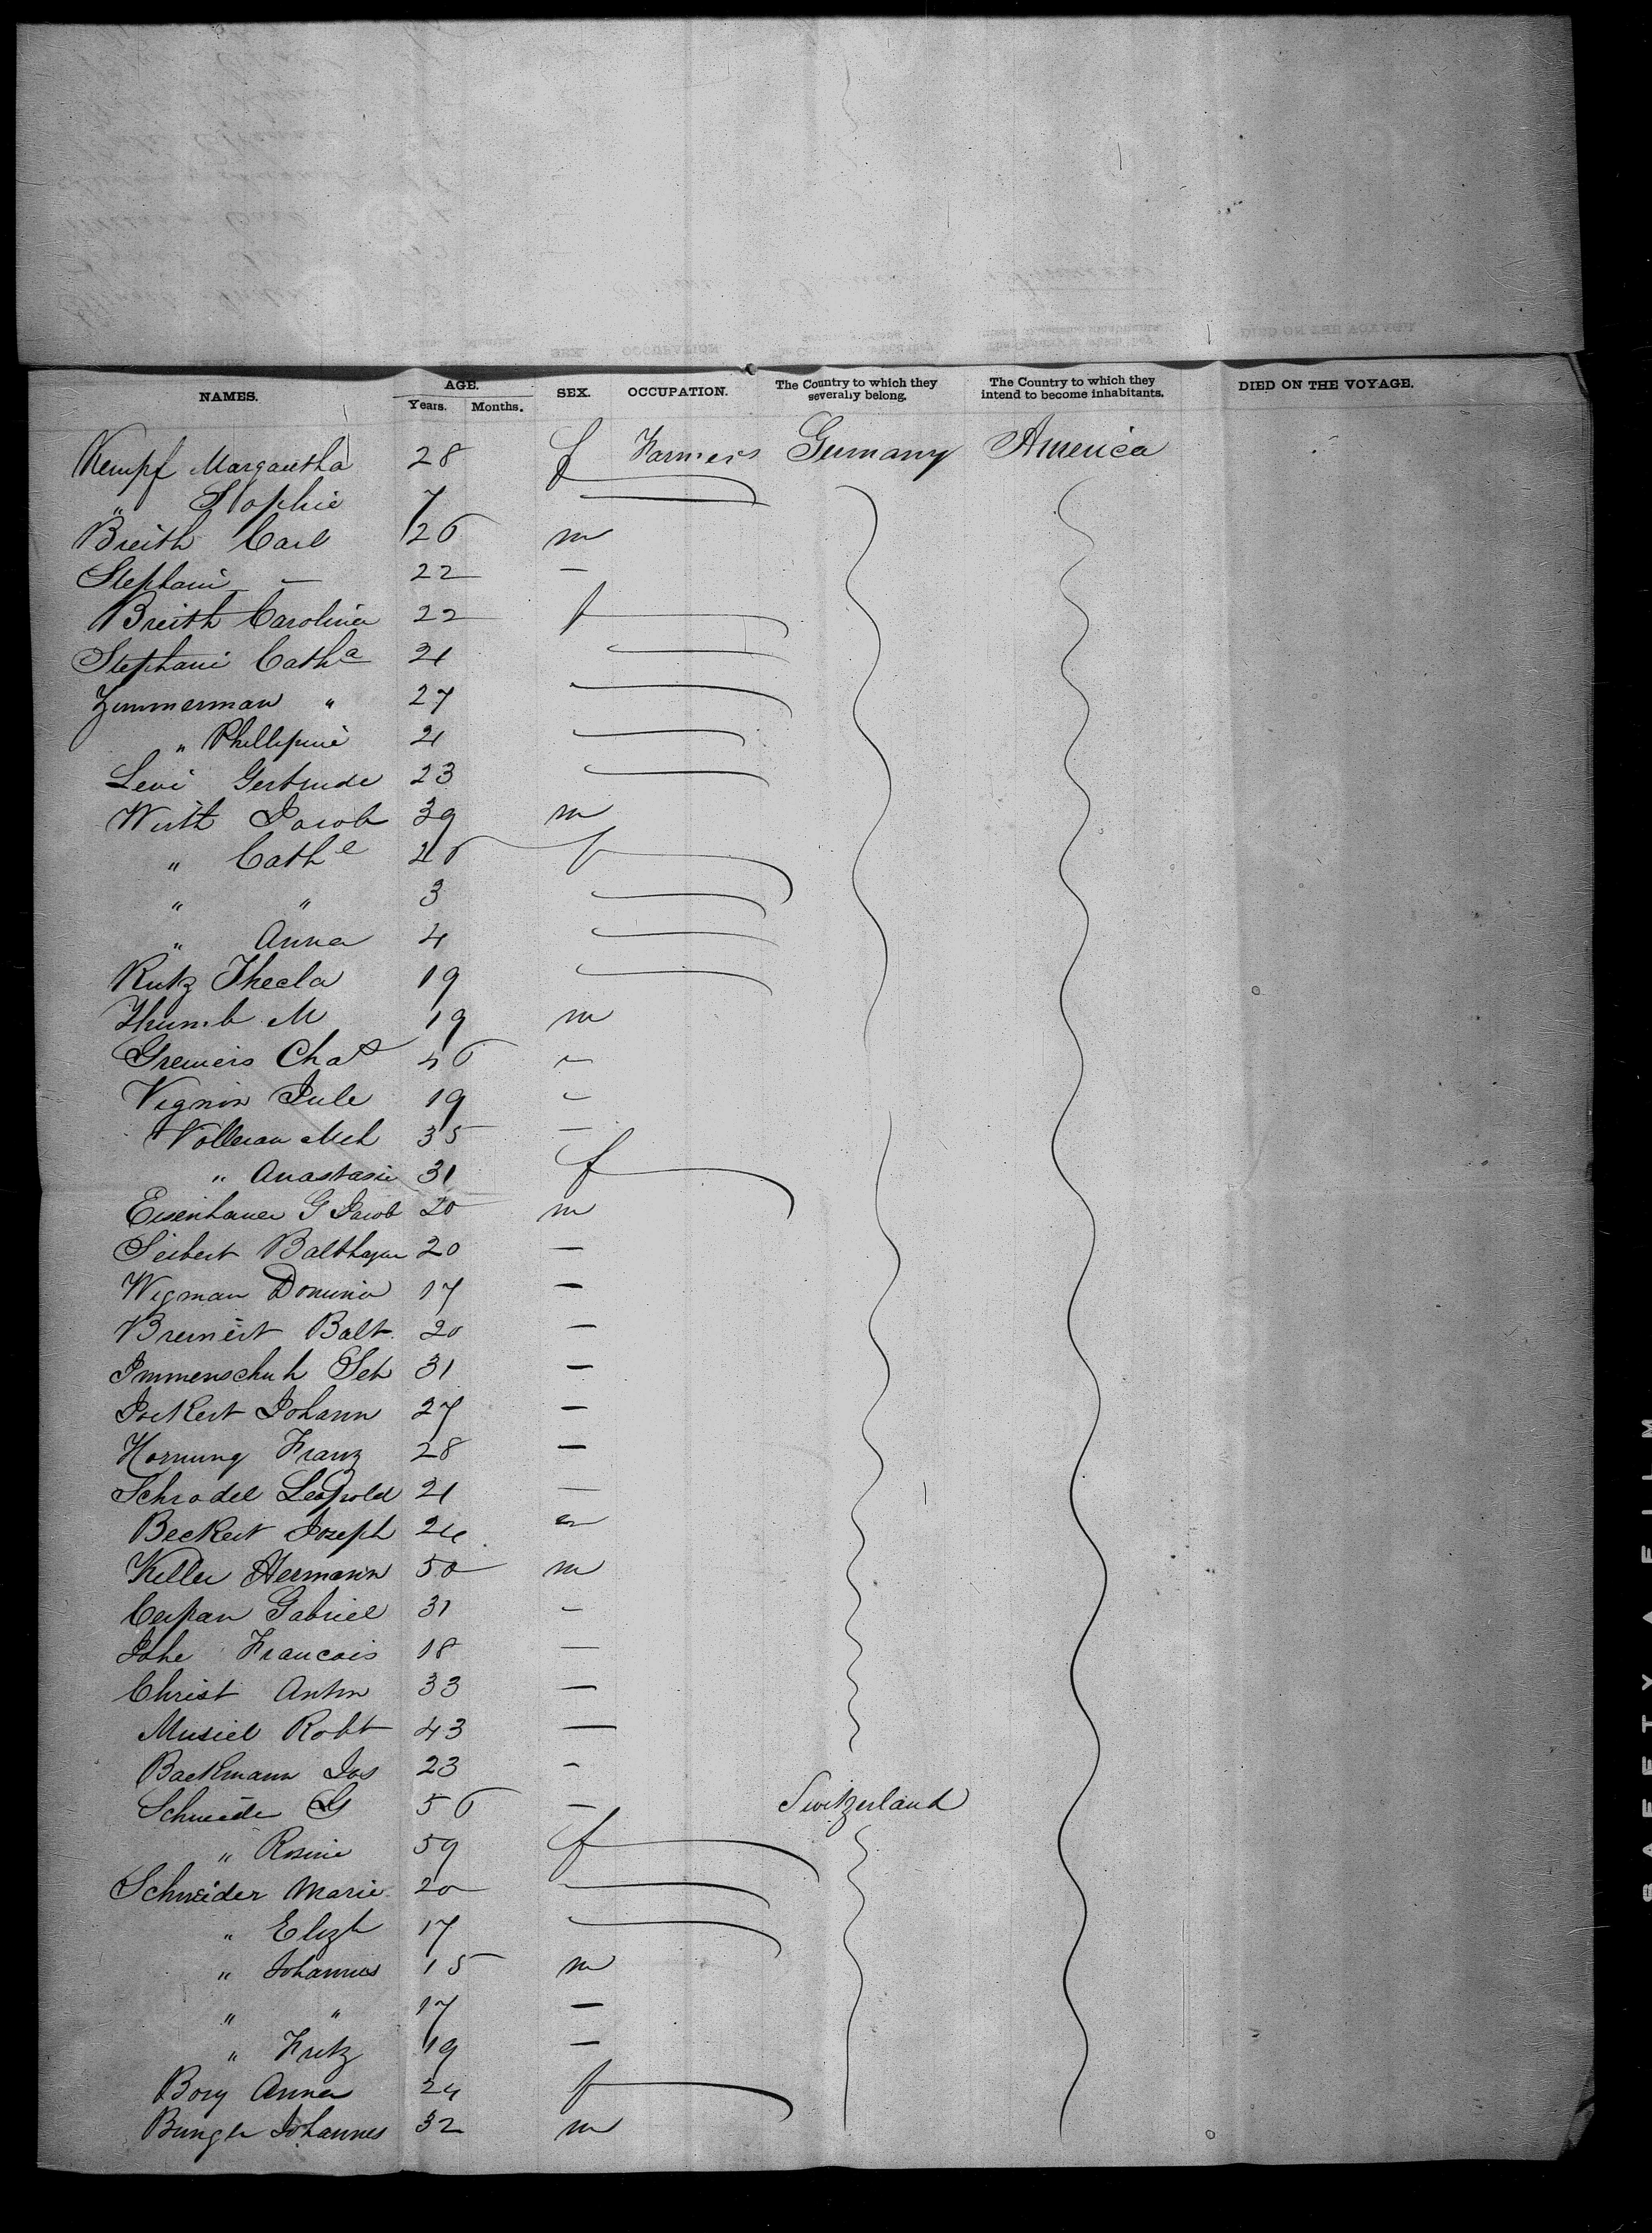 NAMES. AGE. Years. Months. SEX. OCCUPATION. The Country to which they severally belong. The Country to which they intend to become inhabitants. DIED ON THE VOYAGE.
Kempf Margaretha 28 f Farmers Germany America
" Sophie 7
Breith Carl 26 m
Stephani — 22 —
Breith Carolina 22 f
Stephani Catha 21
Zimmerman " 27
" Phillipine 21
Levi Gertrude 23
Wirth Jacob 39 m
" Cathe 26 f
" " 3
" Anna 4
Rutz Thecla 19
Thumb M 19 m
Gremeis Chas 46 —
Vignon Jule 19 —
Vollerau Mch 35 —
" Anastasie 31 f
Eisenhauer G Jacob 20 m
Seibert Balthazar 20 —
Wigman Dominic 17 —
Bremeit Balt. 20 —
Immenschuh Seb 31 —
Jockert Johann 27 —
Hornung Franz 28 —
Schrodel Leopold 21 —
Beckert Joseph 24
Keller Hermann 50 m
Cerpan Gabriel 31 —
Johe Francois 18 —
Christ Anton 33 —
Musiel Robt 43 —
Backmann Jos 23 -
Schneider G 56 — Switzerland
" Rosine 59 f
Schneider Marie 20
" Elizh 17
" Johannes 15 m
" " 17 —
" Fritz 19 —
Bory Anna 24 f
Bunge Johannes 32 m
SAFETY FILM